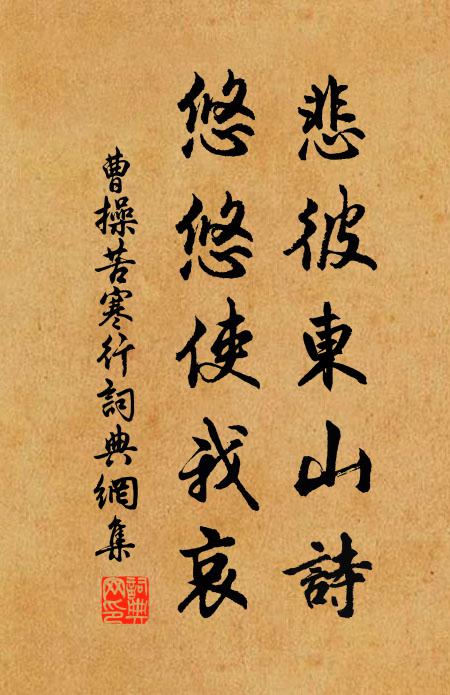 悲彼東山詩
悠悠使我哀
曹操苦寒行詞典網集
詞典
网印